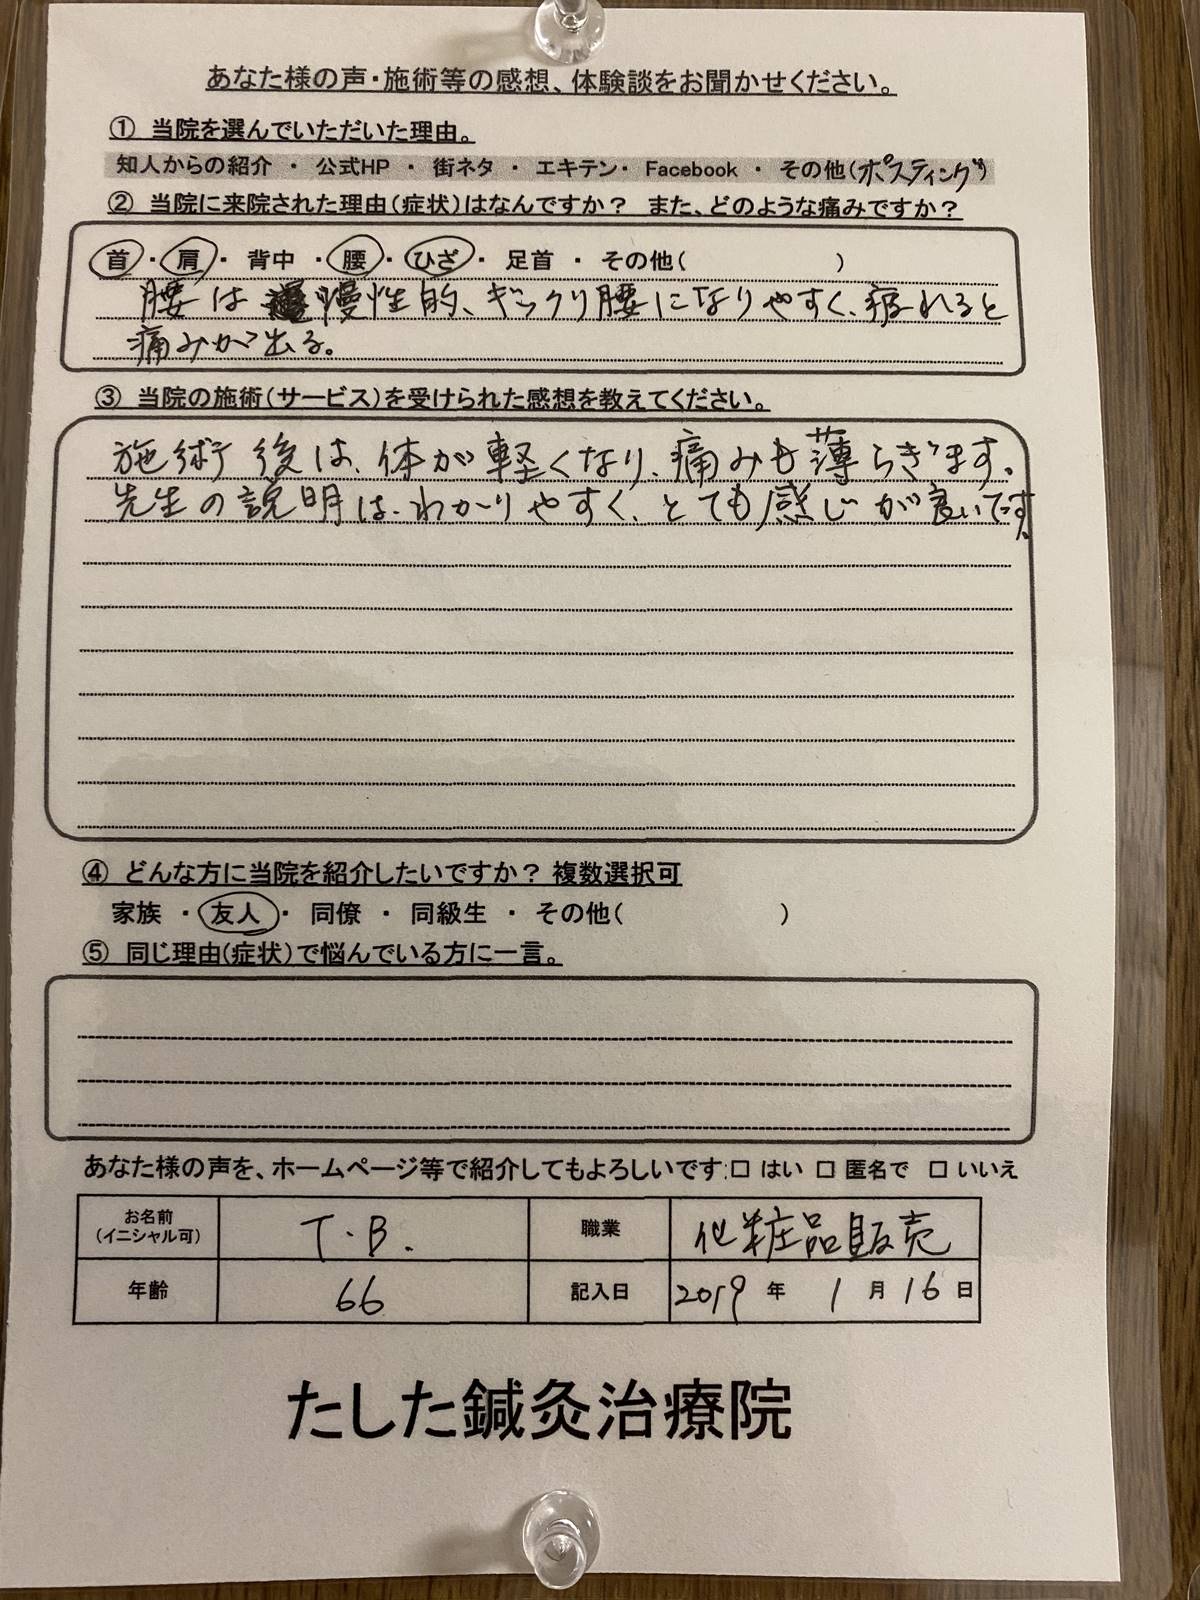 あなた様の声・施術等の感想、体験談をお聞かせください。
① 当院を選んでいただいた理由。
知人からの紹介 ・ 公式HP ・ 街ネタ ・ エキテン・ Facebook ・ その他(ポスティング)
② 当院に来院された理由(症状)はなんですか? また、どのような痛みですか?
首 ・ 肩 ・ 背中 ・ 腰 ・ ひざ ・ 足首 ・ その他( )
腰は 慢性的、ギックリ腰になりやすく、疲れると
痛みが出る。
③ 当院の施術(サービス)を受けられた感想を教えてください。
施術後は、体が軽くなり、痛みも薄らぎます。
先生の説明は、わかりやすく、とても感じが良いです。
④ どんな方に当院を紹介したいですか? 複数選択可
家族 ・ 友人 ・ 同僚 ・ 同級生 ・ その他( )
⑤ 同じ理由(症状)で悩んでいる方に一言。
あなた様の声を、ホームページ等で紹介してもよろしいです □ はい □ 匿名で □ いいえ
お名前(イニシャル可) T.B. 職業 化粧品販売
年齢 66 記入日 2019 年 1 月 16 日
たした鍼灸治療院